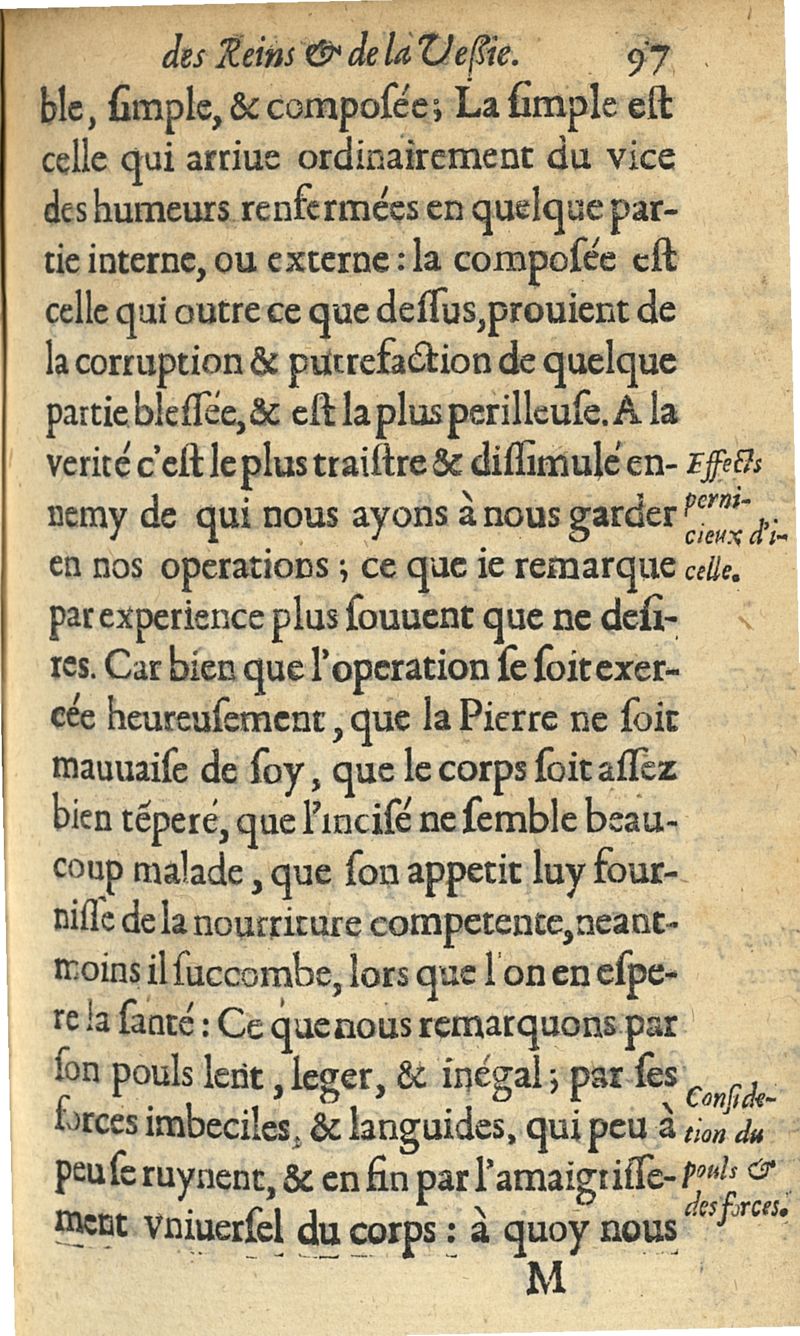 des Reins & de la Veſsie. 97
ble, ſimple, & compoſée; La ſimple eſt
celle qui arriue ordinairement du vice
des humeurs renfermées en quelque par-
tie interne, ou externe : la compoſée eſt
celle qui outre ce que deſſus, prouient de
la corruption & putrefaction de quelque
partie bleſſée, & eſt la plus perilleuſe. A la
verité c'eſt le plus traiſtre & diſſimulé en-
nemy de qui nous ayons à nous garder
en nos operations ; ce que ie remarque
par experience plus ſouuent que ne deſi-
res. Car bien que l'operation ſe ſoit exer-
cée heureuſement, que la Pierre ne ſoit
mauuaiſe de ſoy, que le corps ſoit aſſez
bien tẽperé, que l'inciſé ne ſemble beau-
coup malade, que ſon appetit luy four-
niſſe de la nourriture competente, neant-
moins il ſuccombe, lors que l'on en eſpe-
re la ſanté : Ce que nous remarquons par
ſon pouls lent, leger, & inégal ; par ſes
forces imbeciles, & languides, qui peu à
peu ſe ruynent, & en fin par l'amaigriſſe-
ment vniuerſel du corps : à quoy nous
M
Effects
perni-
cieux d'i-
celle.
Conſide-
tion du
pouls &
des forces.